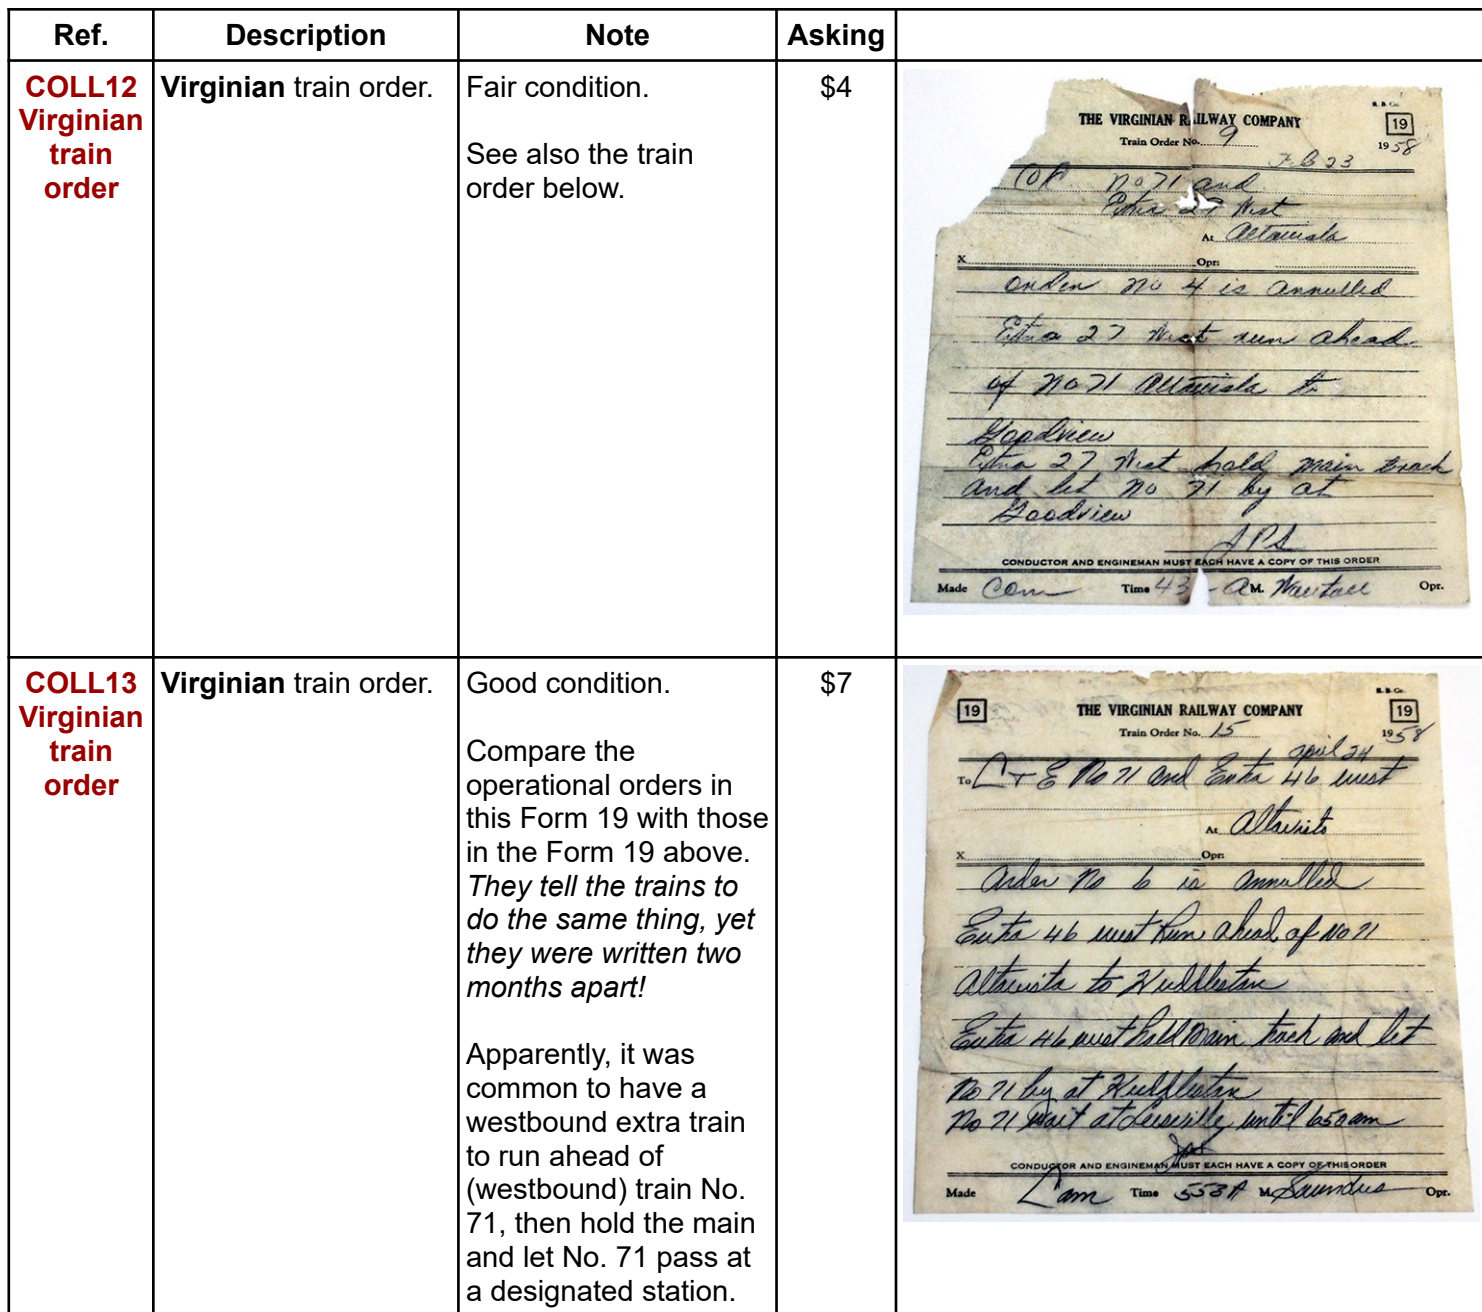 Ref. Description Note Asking
COLL12 Virginian train order
Virginian train order.
Fair condition.
See also the train
order below.
$4
R. B. Co.
THE VIRGINIAN RAILWAY COMPANY
19
Train Order No. 9
1958
Feb 23
No 71 and
Extra 27 West
At Altavista
X Opr:
Order No 4 is annulled
Extra 27 West run ahead
of No 71 Altavista to
Goodview
Extra 27 West hold main track
and let No 71 by at
Goodview
JPS
CONDUCTOR AND ENGINEMAN MUST EACH HAVE A COPY OF THIS ORDER
Made Com Time 43 - A M. Opr.
COLL13 Virginian train order
Virginian train order.
Good condition.
Compare the
operational orders in
this Form 19 with those
in the Form 19 above.
They tell the trains to
do the same thing, yet
they were written two
months apart!
Apparently, it was
common to have a
westbound extra train
to run ahead of
(westbound) train No.
71, then hold the main
and let No. 71 pass at
a designated station.
$7
R. B. Co.
19 THE VIRGINIAN RAILWAY COMPANY 19
Train Order No. 15
1958
April 24
To C + E No 71 and Extra 46 west
At Altavista
X Opr:
Order No 6 is annulled
Extra 46 west Run ahead of No 71
Altavista to Huddleston
Extra 46 west hold main track and let
No 71 by at Huddleston
No 71 wait at Leesville until 650 am
CONDUCTOR AND ENGINEMAN MUST EACH HAVE A COPY OF THIS ORDER
Made Com Time 553 A M. Saunders Opr.